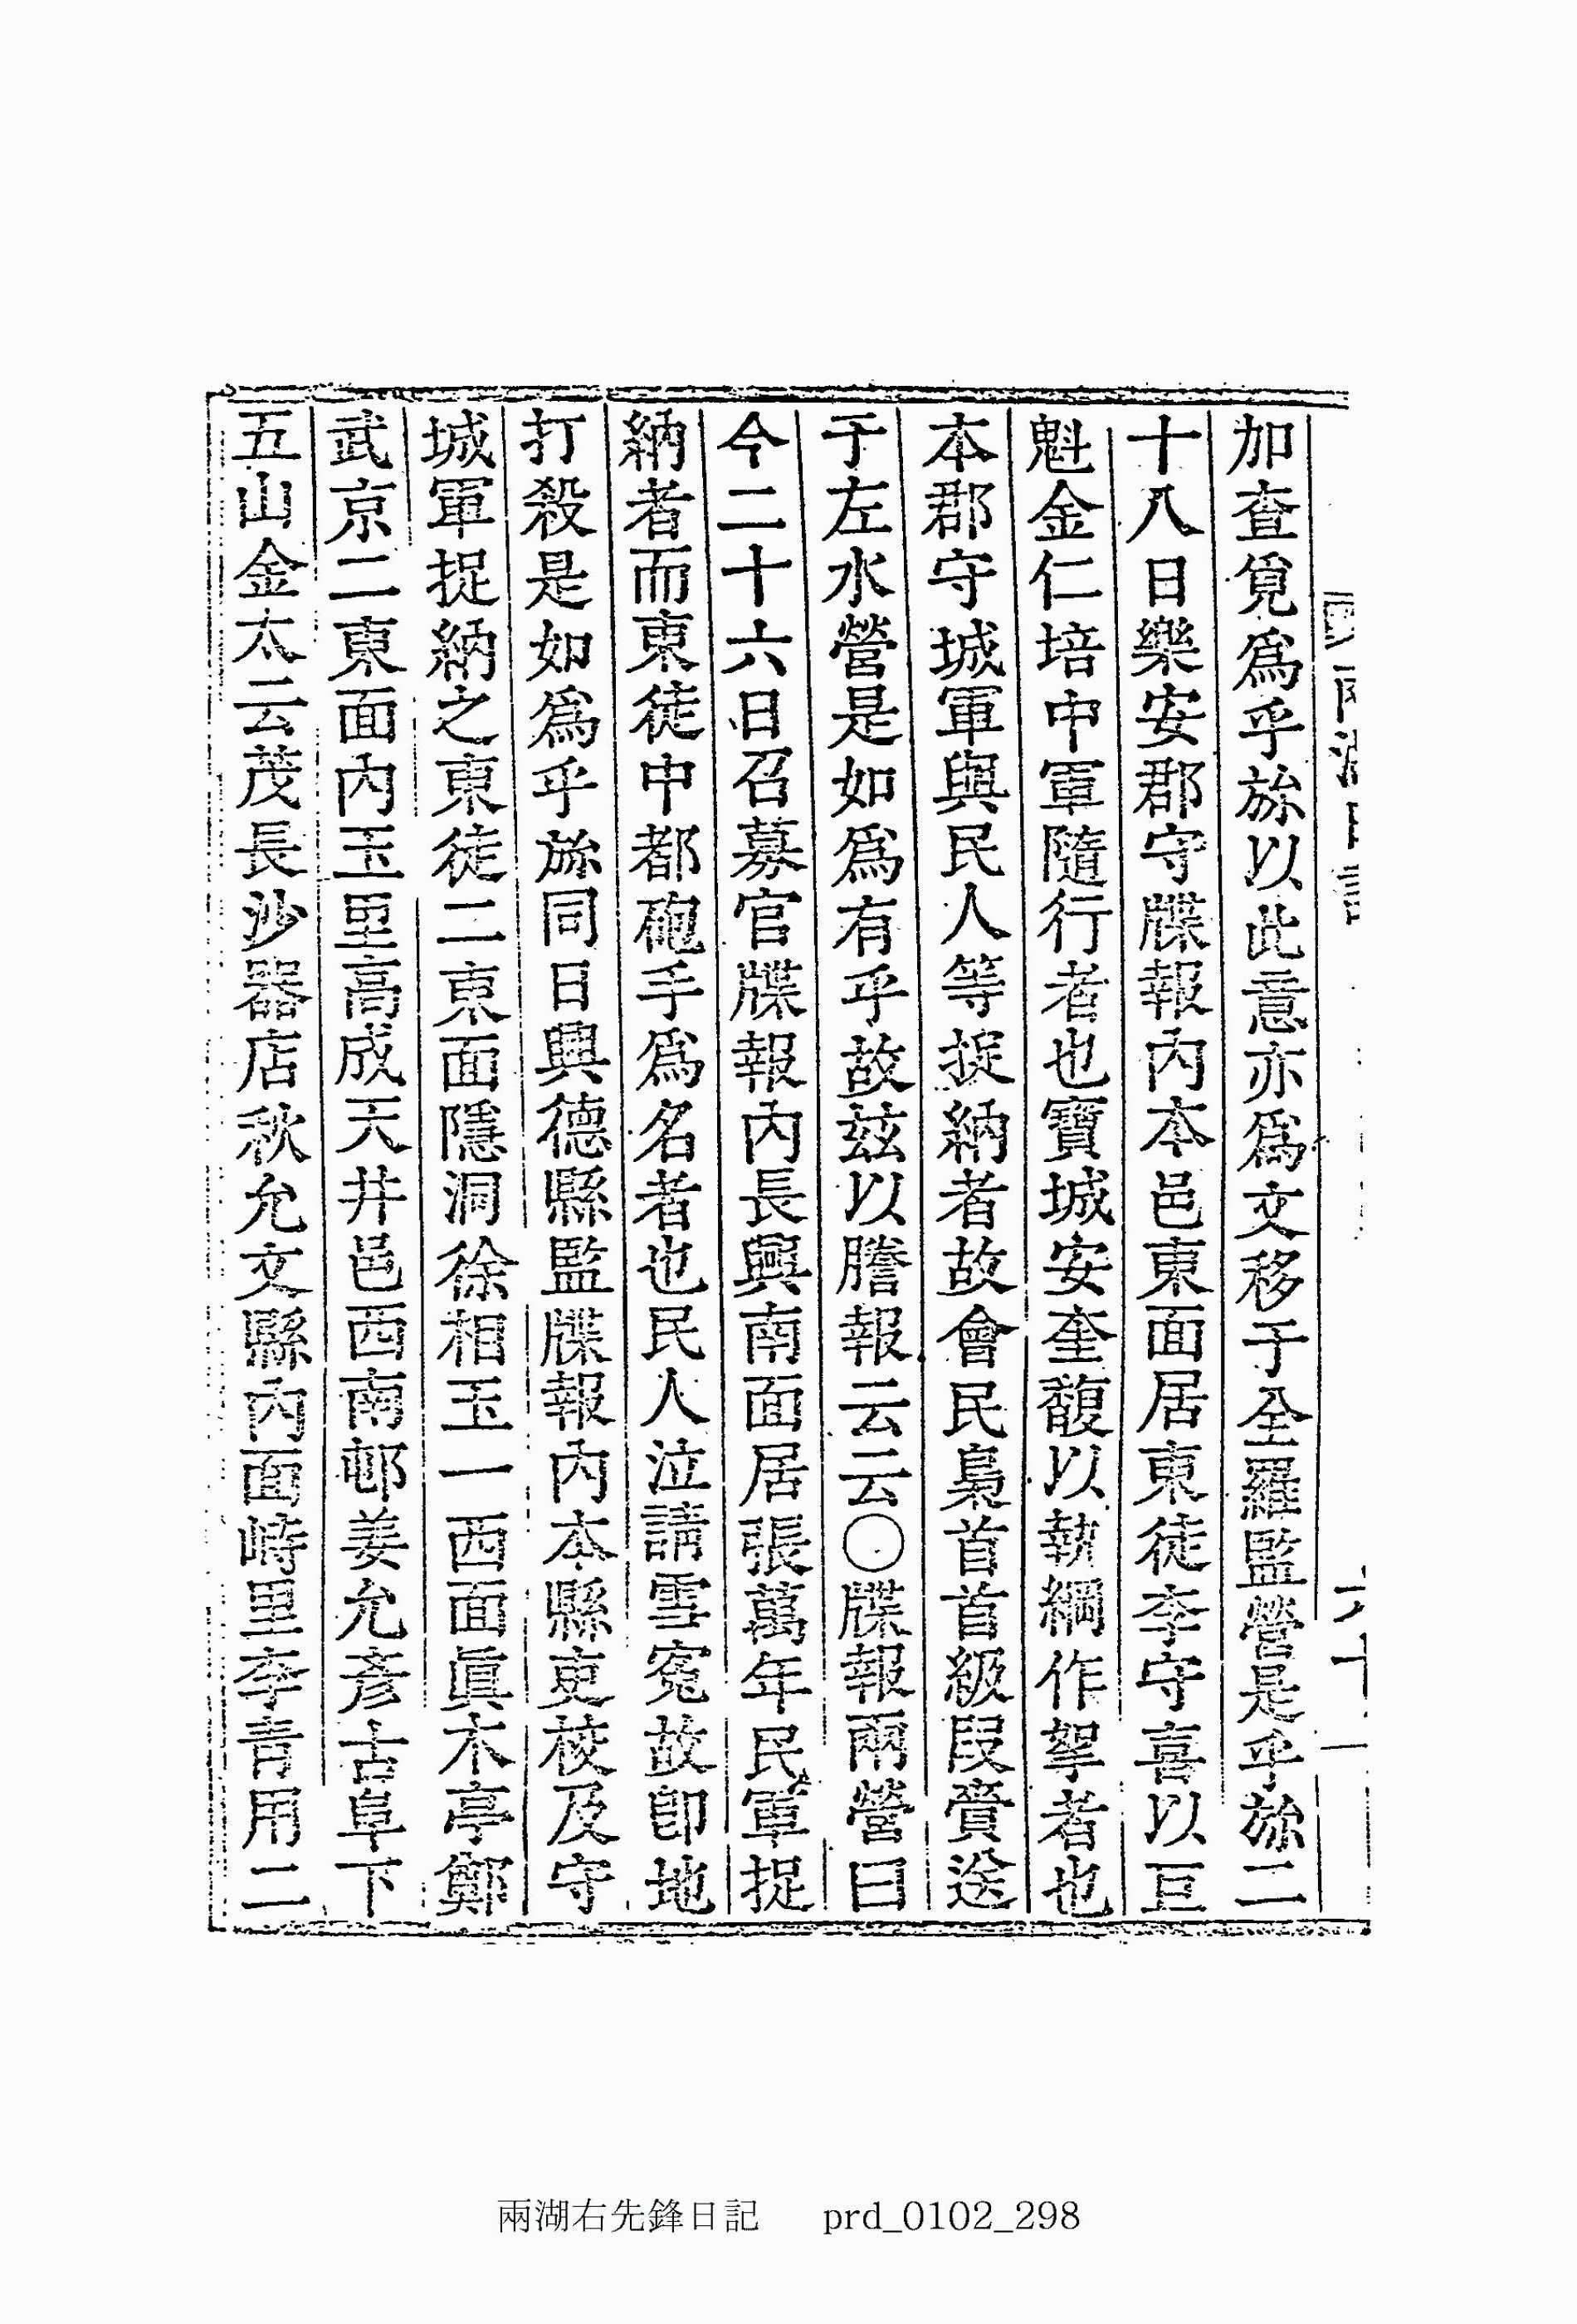 加查覓爲乎旀以此意亦爲文移于全羅監營是乎旀二
十八日樂安郡守牒報內本邑東面居東徒李守喜以巨
魁金仁培中軍隨行者也寶城安奎馥以執綱作挐者也
本郡守城軍與民人等捉納者故會民梟首首級段賫送
于左水營是如爲有乎故玆以謄報云云○牒報兩營曰
今二十六日召募官牒報內長興南面居張萬年民軍捉
納者而東徒中都砲手爲名者也民人泣請雪寃故卽地
打殺是如爲乎旀同日興德縣監牒報內本縣吏校及守
城軍捉納之東徒二東面隱洞徐相玉一西面眞木亭鄭
武京二東面內玉里高成天井邑西南邨姜允彥古阜下
五山金太云茂長沙器店秋允文縣內面峙里李靑用二
兩湖右先鋒日記 prd_0102_298